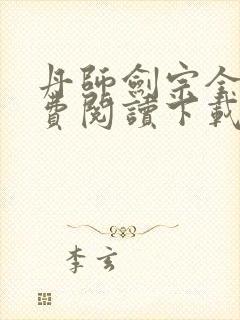 丹師劍宗全
費閱讀下載
李玄